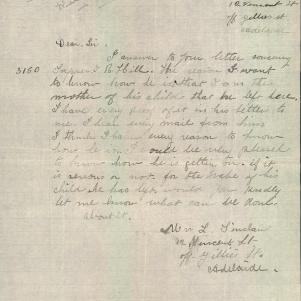 12 Vincent St
off Gillies St
Adelaide
Dear Sir
I answer to your letter concerning
3160 B. Hill. The reason I want
to know how he is that I am the
mother of his child that he left here
I have every respect in his letters to
me I hear every mail from him
I think I have every reason to know
how he is I would be very pleased
to know how he is getting on. If it
is serious or not for the sake of his
child he has left would you kindly
let me know what can be done
about it.
Mrs L. Sinclair
12 Vincent St
off Gillies St.
Adelaide.